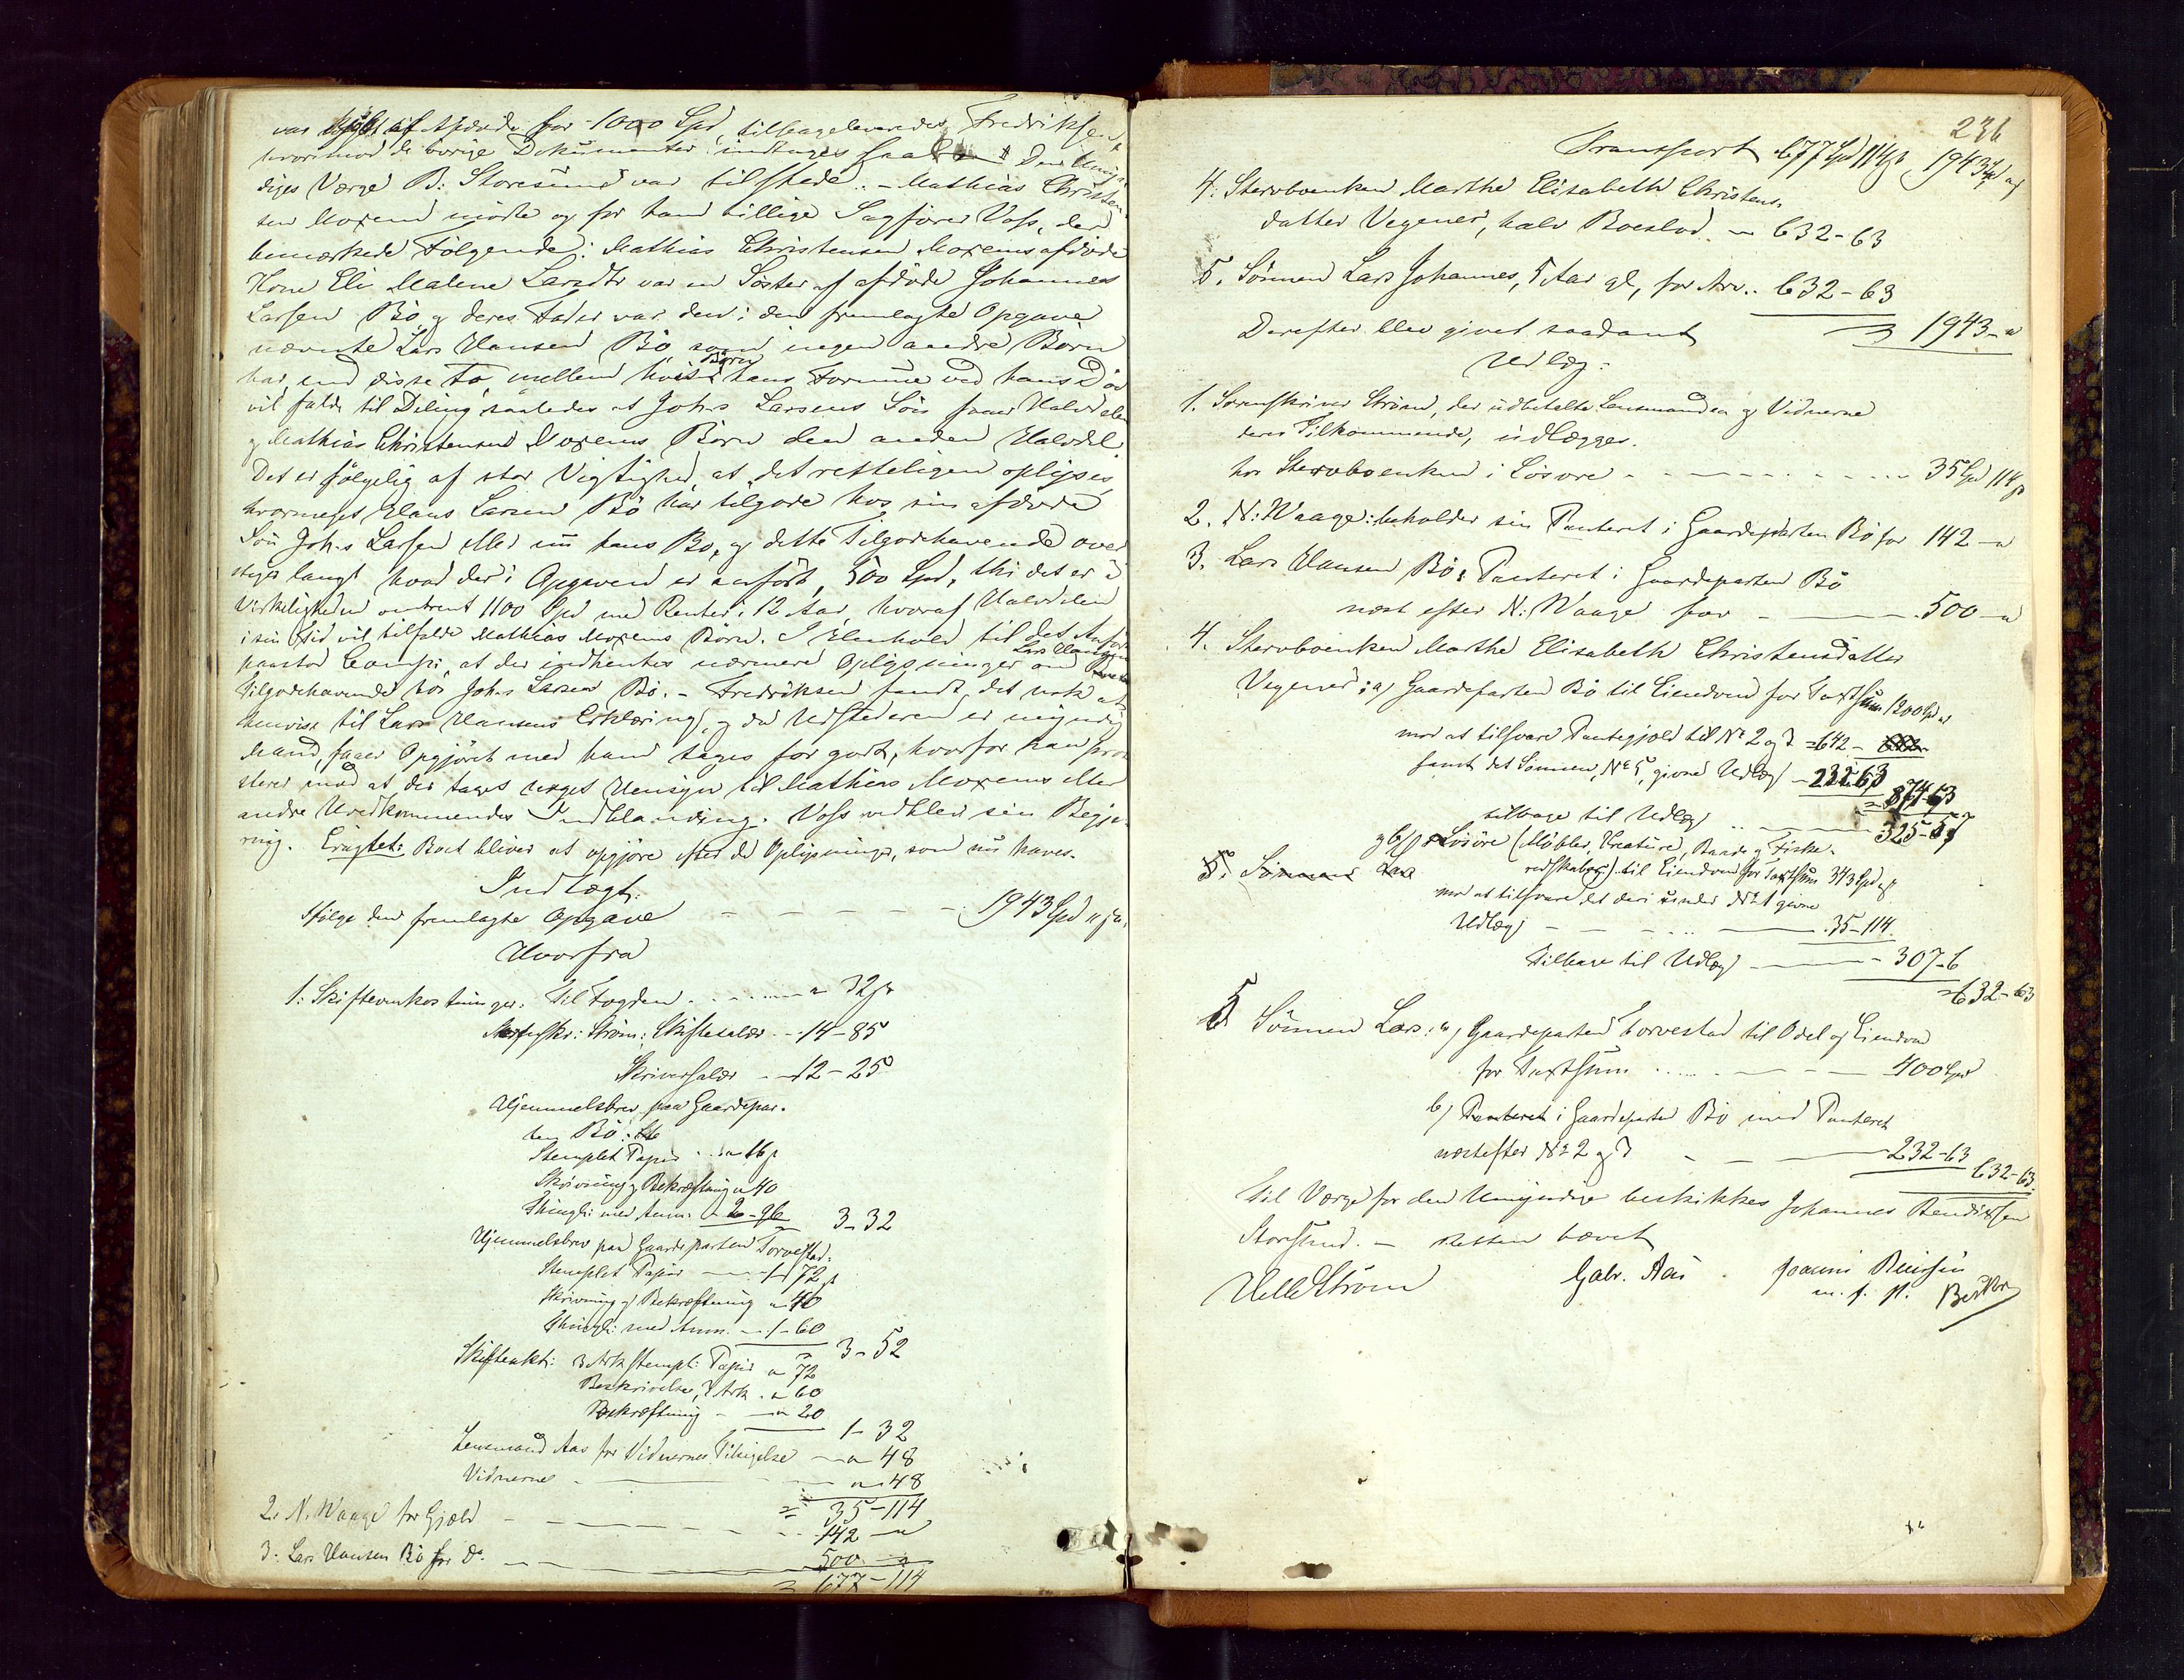 var kjøbt af Afdøde for 1000 Spd, tilbageleveredes Fredriksen
hvorimod de øvrige Dokumenter indtages saal. Den Umyn-
diges Værge B. Storesund var tilstede. - Mathias Christen-
sen Moxens mødte og for ham tillige Sagfører Voss, der
bemærkede Følgende: Mathias Christensen Moxens afdøde
Kone Eli Malene Larsdtr var en Søster af afdøde Johannes
Larsen Bö og deres Fader var den i den fremlagte Opgave
nævnte Lars Hansen Bö, som ingen andre Börn
har, end disse to, mellem hvis Börn hans Formue ved hans Död
vil falde til Deling saaledes at Johs Larsens Sön faaer Halvdelen
og Mathias Christensens Moxens Börn den anden Halvdel.
Det er fölgelig af stor Vigtighed, at det retteligen oplyses,
hvormeget Hans Larsen Bö har tilgode hos sin afdøde
Sön Johs Larsen eller nu hans Bo, og dette Tilgodehavende over
stiger langt hvad der i Opgaven er anfört, 500 Spd, thi det er i
Virkeligheden omtrent 1100 Spd med Renter i 12 Aar, hvoraf Halvdelen
i sin Tid vil tilfalde Mathias Moxens Börn. I Henhold til det Anförte
paastod Comp. at der indhentes nærmere Oplysninger om Lars Hansens
Tilgodehavende hos Johs Larsen Bö. - Fredriksen fandt det nok at
henvise til Lars Hansens Erklæring, og da Udstederen er myndig
Mand, faaer Opgjöret med ham tages for godt, hvorfor han pro-
sterer mod at der tages noget Hensyn til Mathias Moxens eller
andre Uvedkommendes Indblanding. Voss vedblev sin Begjæ-
ring. Eragtet: Boet bliver at opgjöre efter de Oplysninger, som nu haves.
Indtægt:
Ifölge den fremlagte Opgave - - - 1943 Spd " s.
Hvorfra
1. Skifteomkostninger. Til Fogden - - - " 32 s
Sorenskr: Ström: Skiftesalær - - 14-85
Skriversalær - - 12-25
Hjemmelsbrev paa Gaardepar-
ten Bö:
Stemplet Papir - - " 16 s
Skrivning og Bekræftning " 40
Thingl: med Anm: - 2-96 3-32
Hjemmelsbrev paa Gaardeparten Torvestad:
Stemplet Papir - - 1 72 s
Skrivning og Bekræftning " 40
Thingl: med Anm. - 1-60
3-52
Skifteakt: 3 Ark stempl: Papir " 72
Beskrivelse, 3 Ark - " 60
Bekræftning - - " 20
1-32
Lensmand Aas for Vidnernes Tilsigelse - " 48
Vidnerne - - - " 48
= 35-114
2. N. Waage for Gjæld - - - 142 - "
3. Lars Hansen Bö for Do. - - 500 - "
= 677-114
236
Transport 677 Spd 114 s 1943 Spd " s
4. Stervboenken Marthe Elisabeth Christens-
datter Vegenes, halv Boeslod - 632-63
5. Sönnen Lars Johannes, 5 Aar gl, for Arv.. 632-63
= 1943 - "
Derefter blev givet saadant
Udlæg:
1. Sorenskriver Ström, der udbetalte Lensmanden og Vidnerne
deres Tilkommende, udlægges.
hos Stervboenken i Lösöre - - - - 35 Spd 114 s
2. N: Waage: beholder sin Panteret i Gaardeparten Bö for 142 - "
3. Lars Hansen Bö: Panteret i Gaardeparten Bö
næst efter N: Waage for - - - 500 - "
4. Stervboenken Marthe Elisabeth Christensdatter
Vegenes: a) Gaardeparten Bö til Eiendom for Taxtsum 1200 Spd "
mod at tilsvare Pantegjæld til No 2 og 3 = 642 -
samt det Sönnen, No 5, givne Udlæg - 232-63
= 874-63
tilbage til Udlæg - - - 325-57
og b) Lösöre (Möbler, Kreature, Baade og Fiske-
redskaber) til Eiendom for Taxtsum 343 Spd " s
5. Sönnen Lars
mod at tilsvare det deri under No 1 givne
Udlæg - - - 35-114
Tilbage til Udlæg - - 307-6
= 632-63
5 Sönnen Lars: a) Gaardeparten Torvestad til Odel og Eiendom
for Taxtsum - - - 400 Spd
b) Panteret i Gaardeparten Bö med Panteret
næstefter No 2 og 3 - - - 232-63
632-63
Til Værge for den Umyndige beskikkes Johannes Bendixsen
Storesund. - Retten hævet
Helle Ström Gabr. Aas.
m. f. P.